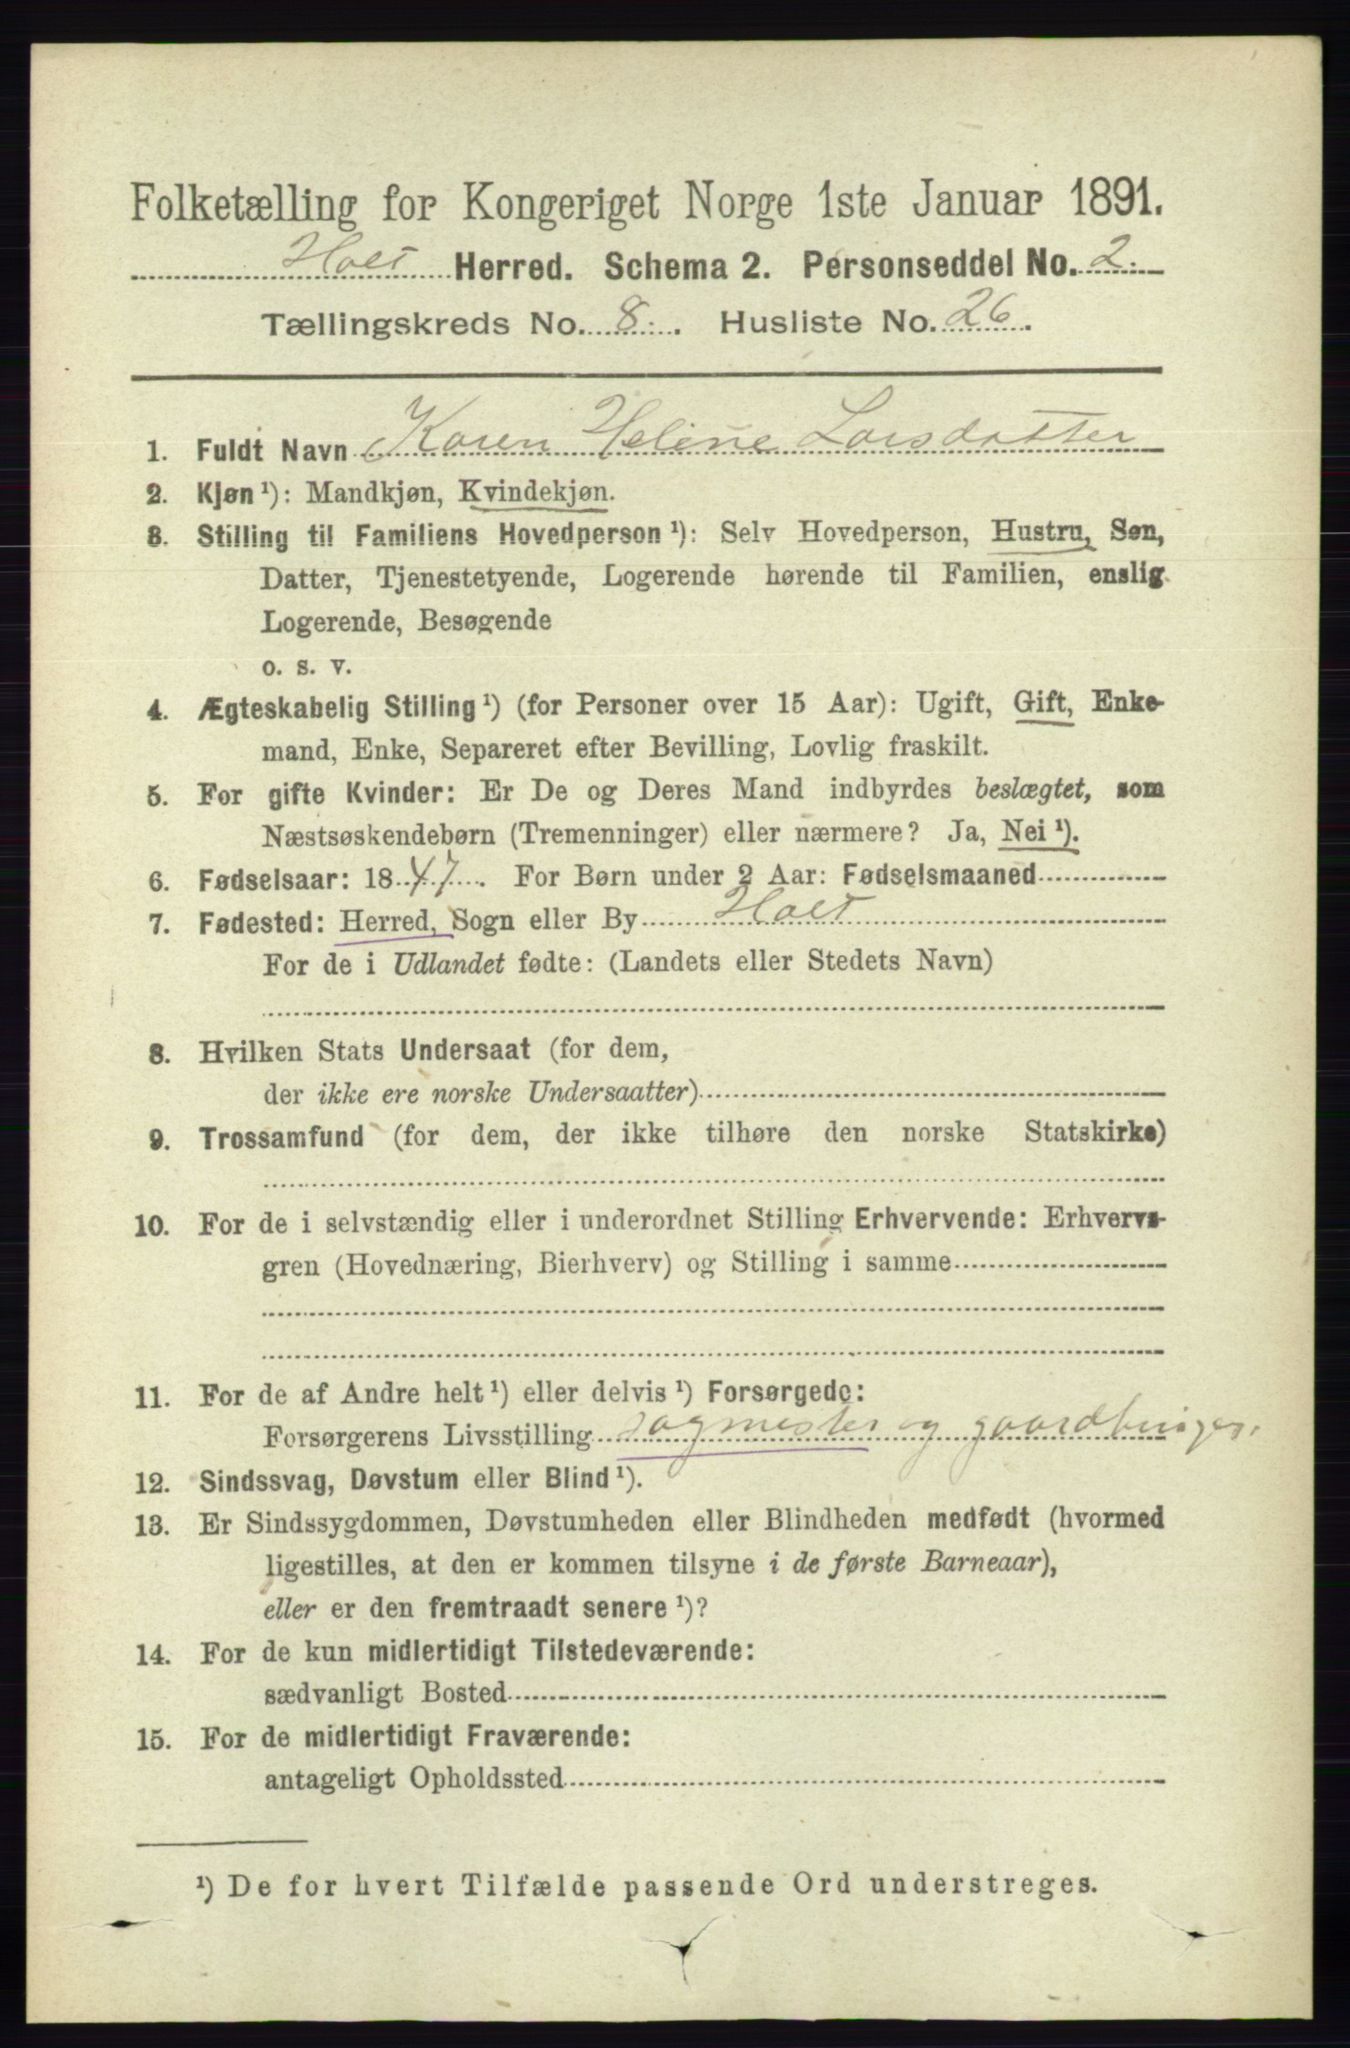 Folketælling for Kongeriget Norge 1ste Januar 1891.
Holt Herred. Schema 2. Personseddel No. 2.
Tællingskreds No. 8. Husliste No. 26.
1. Fuldt Navn Karen Heline Larsdatter
2. Kjøn ¹): Mandkjøn, Kvindekjøn.
3. Stilling til Familiens Hovedperson ¹): Selv Hovedperson, Hustru, Søn,
Datter, Tjenestetyende, Logerende hørende til Familien, enslig
Logerende, Besøgende
o. s. v.
4. Ægteskabelig Stilling ¹) (for Personer over 15 Aar): Ugift, Gift, Enke-
mand, Enke, Separeret efter Bevilling, Lovlig fraskilt.
5. For gifte Kvinder: Er De og Deres Mand indbyrdes beslægtet, som
Næstsøskendebørn (Tremenninger) eller nærmere? Ja, Nei ¹).
6. Fødselsaar: 1847. For Børn under 2 Aar: Fødselsmaaned
7. Fødested: Herred, Sogn eller By Holt
For de i Udlandet fødte: (Landets eller Stedets Navn)
8. Hvilken Stats Undersaat (for dem,
der ikke ere norske Undersaatter)
9. Trossamfund (for dem, der ikke tilhøre den norske Statskirke)
10. For de i selvstændig eller i underordnet Stilling Erhvervende: Erhvervs-
gren (Hovednæring, Bierhverv) og Stilling i samme
11. For de af Andre helt ¹) eller delvis ¹) Forsørgede:
Forsørgerens Livsstilling sagmester og gaardbruger.
12. Sindssvag, Døvstum eller Blind ¹).
13. Er Sindssygdommen, Døvstumheden eller Blindheden medfødt (hvormed
ligestilles, at den er kommen tilsyne i de første Barneaar),
eller er den fremtraadt senere ¹)?
14. For de kun midlertidigt Tilstedeværende:
sædvanligt Bosted
15. For de midlertidigt Fraværende:
antageligt Opholdssted
¹) De for hvert Tilfælde passende Ord understreges.